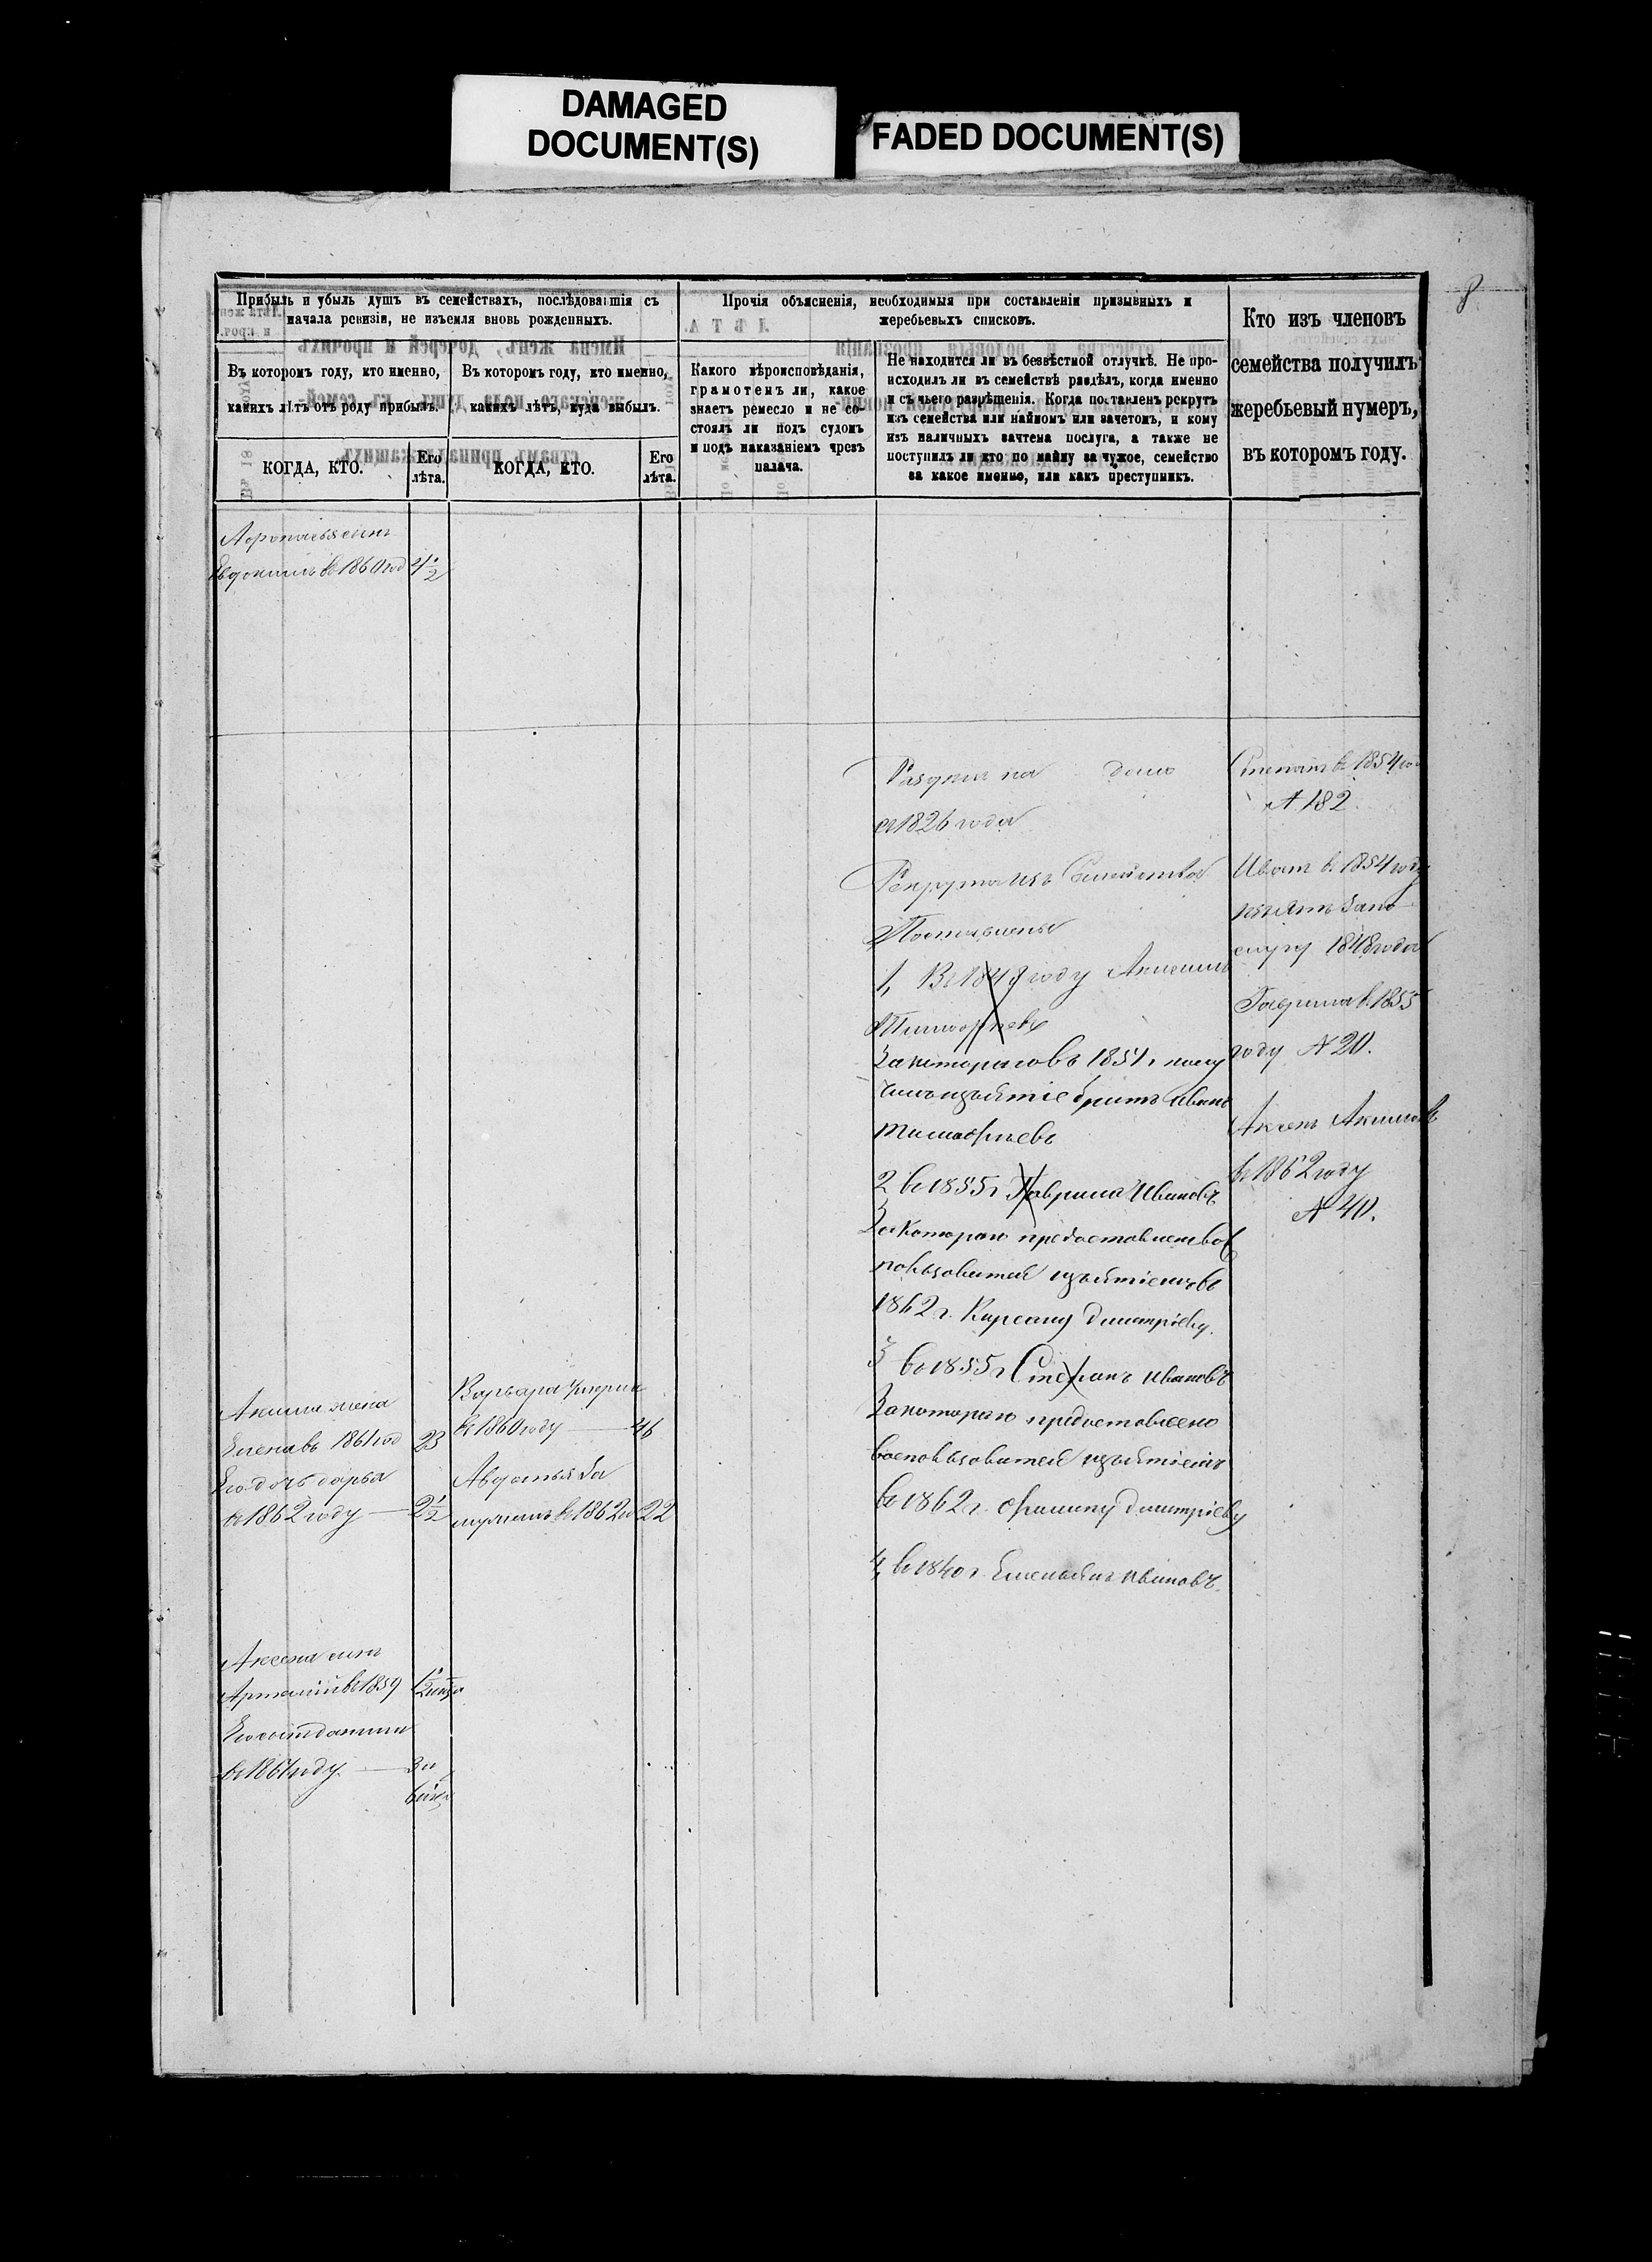 DAMAGED
DOCUMENT(S)
FADED DOCUMENT(S)
8
Прибыль и убыль душъ въ семействахъ, послѣдовавшія съ
начала ревизіи, не изъемля вновь рожденныхъ.
Въ которомъ году, кто именно,
какихъ лѣтъ отъ роду прибылъ.
КОГДА, КТО.
Его
лѣта.
Въ которомъ году, кто именно,
какихъ лѣтъ, куда выбылъ.
КОГДА, КТО.
Его
лѣта.
Прочія объясненія, необходимыя при составленіи призывныхъ и
жеребьевыхъ списковъ.
Какого вѣроисповѣданія,
грамотенъ ли, какое
знаетъ ремесло и не со-
стоялъ ли подъ судомъ
и подъ наказаніемъ чрезъ
палача.
Не находится ли въ безвѣстной отлучкѣ. Не про-
исходилъ ли въ семействѣ раздѣлъ, когда именно
и съ чьего разрѣшенія. Когда поставленъ рекрутъ
изъ семейства или наймомъ или зачетомъ, и кому
изъ наличныхъ зачтена послуга, а также не
поступилъ ли кто по найму за чужое, семейство
за какое именно, или какъ преступникъ.
Кто изъ членовъ
семейства получилъ
жеребьевый нумеръ,
въ которомъ году.
сынъ
Евдокимъ въ 1860 год 4½
съ 1826 года
Рекрута изъ Семейства
Поставлены
1, Въ 1848 году
За котораго въ 1854 г. полу
чилъ изъятіе братъ Иванъ
Тимофѣевъ
2 въ 1855 г. Гаврила Ивановъ
За котораго предоставлено вос
пользоватся изъятіемъ въ
1862 г. Кирсану Дмитріеву.
3 въ 1855 г. Степанъ Ивановъ
За котораго предоставлено
воспользоватся изъятіемъ
въ 1862 г. Филипу Дмитріеву
4, въ 1840 г. Емельянъ Ивановъ.
Степанъ въ 1854 год
№ 182
Иванъ въ 1854 году
изъятъ за по
слугу 1848 года
Гаврила въ 1855
году № 20.
Аксенъ Акимовъ
въ 1862 году
№ 40.
Акима жена
Елена въ 1861 год 23
Его дочь дарья
въ 1862 году — 2½
Варвара умерла
въ 1860 году — 46
Авдотья За
мужемъ въ 1862 го 22
Аксена сынъ
въ 1859
Его сынъ
въ 1861 году —